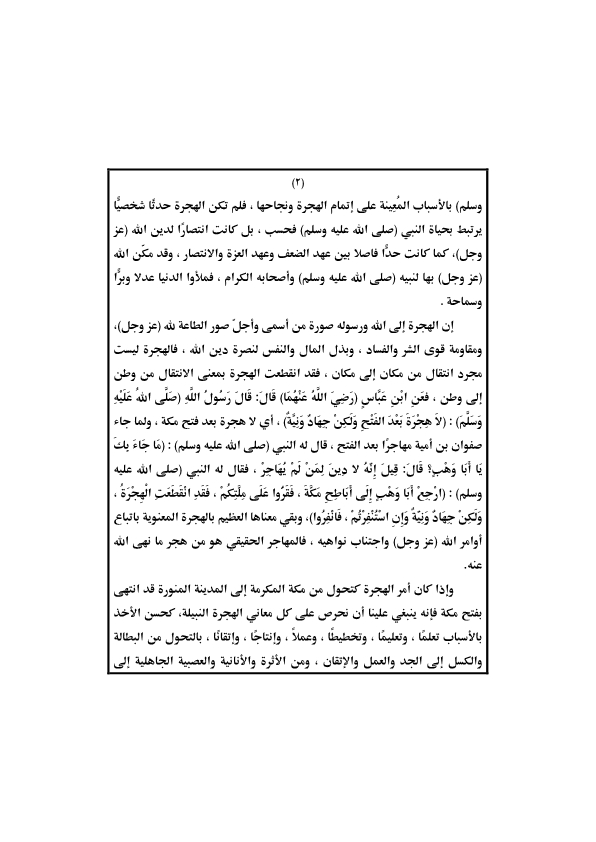 (٢)
وسلم) بالأسباب المُعِينة على إتمام الهجرة ونجاحها ، فلم تكن الهجرة حدثًا شخصيًّا
يرتبط بحياة النبي (صلى الله عليه وسلم) فحسب ، بل كانت انتصارًا لدين الله (عز
وجل)، كما كانت حدًّا فاصلا بين عهد الضعف وعهد العزة والانتصار ، وقد مكّن الله
(عز وجل) بها لنبيه (صلى الله عليه وسلم) وأصحابه الكرام ، فملأوا الدنيا عدلا وبرًّا
وسماحة .
إن الهجرة إلى الله ورسوله صورة من أسمى وأجلّ صور الطاعة لله (عز وجل)،
ومقاومة قوى الشر والفساد ، وبذل المال والنفس لنصرة دين الله ، فالهجرة ليست
مجرد انتقال من مكان إلى مكان ، فقد انقطعت الهجرة بمعنى الانتقال من وطن
إلى وطن ، فعَنِ ابْنِ عَبَّاسٍ (رَضِيَ اللَّهُ عَنْهُمَا) قَالَ: قَالَ رَسُولُ اللَّهِ (صَلَّى اللهُ عَلَيْهِ
وَسَلَّمَ) : (لاَ هِجْرَةَ بَعْدَ الفَتْحِ وَلَكِنْ جِهَادٌ وَنِيَّةٌ) ، أي لا هجرة بعد فتح مكة ، ولما جاء
صفوان بن أمية مهاجرًا بعد الفتح ، قال له النبي (صلى الله عليه وسلم) : (مَا جَاءَ بِكَ
يَا أَبَا وَهْبٍ؟ قَالَ: قِيلَ إِنَّهُ لا دِينَ لِمَنْ لَمْ يُهَاجِرْ ، فقال له النبي (صلى الله عليه
وسلم) : (ارْجِعْ أَبَا وَهْبٍ إِلَى أَبَاطِحِ مَكَّةَ ، فَقَرُّوا عَلَى مِلَّتِكُمْ ، فَقَدِ انْقَطَعَتِ الْهِجْرَةُ ،
وَلَكِنْ جِهَادٌ وَنِيَّةٌ وَإِنِ اسْتُنْفِرْتُمْ ، فَانْفِرُوا)، وبقي معناها العظيم بالهجرة المعنوية باتباع
أوامر الله (عز وجل) واجتناب نواهيه ، فالمهاجر الحقيقي هو من هجر ما نهى الله
عنه.
وإذا كان أمر الهجرة كتحول من مكة المكرمة إلى المدينة المنورة قد انتهى
بفتح مكة فإنه ينبغي علينا أن نحرص على كل معاني الهجرة النبيلة، كحسن الأخذ
بالأسباب تعلمًا ، وتعليمًا ، وتخطيطًا ، وعملاً ، وإنتاجًا ، وإتقانًا ، بالتحول من البطالة
والكسل إلى الجد والعمل والإتقان ، ومن الأثرة والأنانية والعصبية الجاهلية إلى